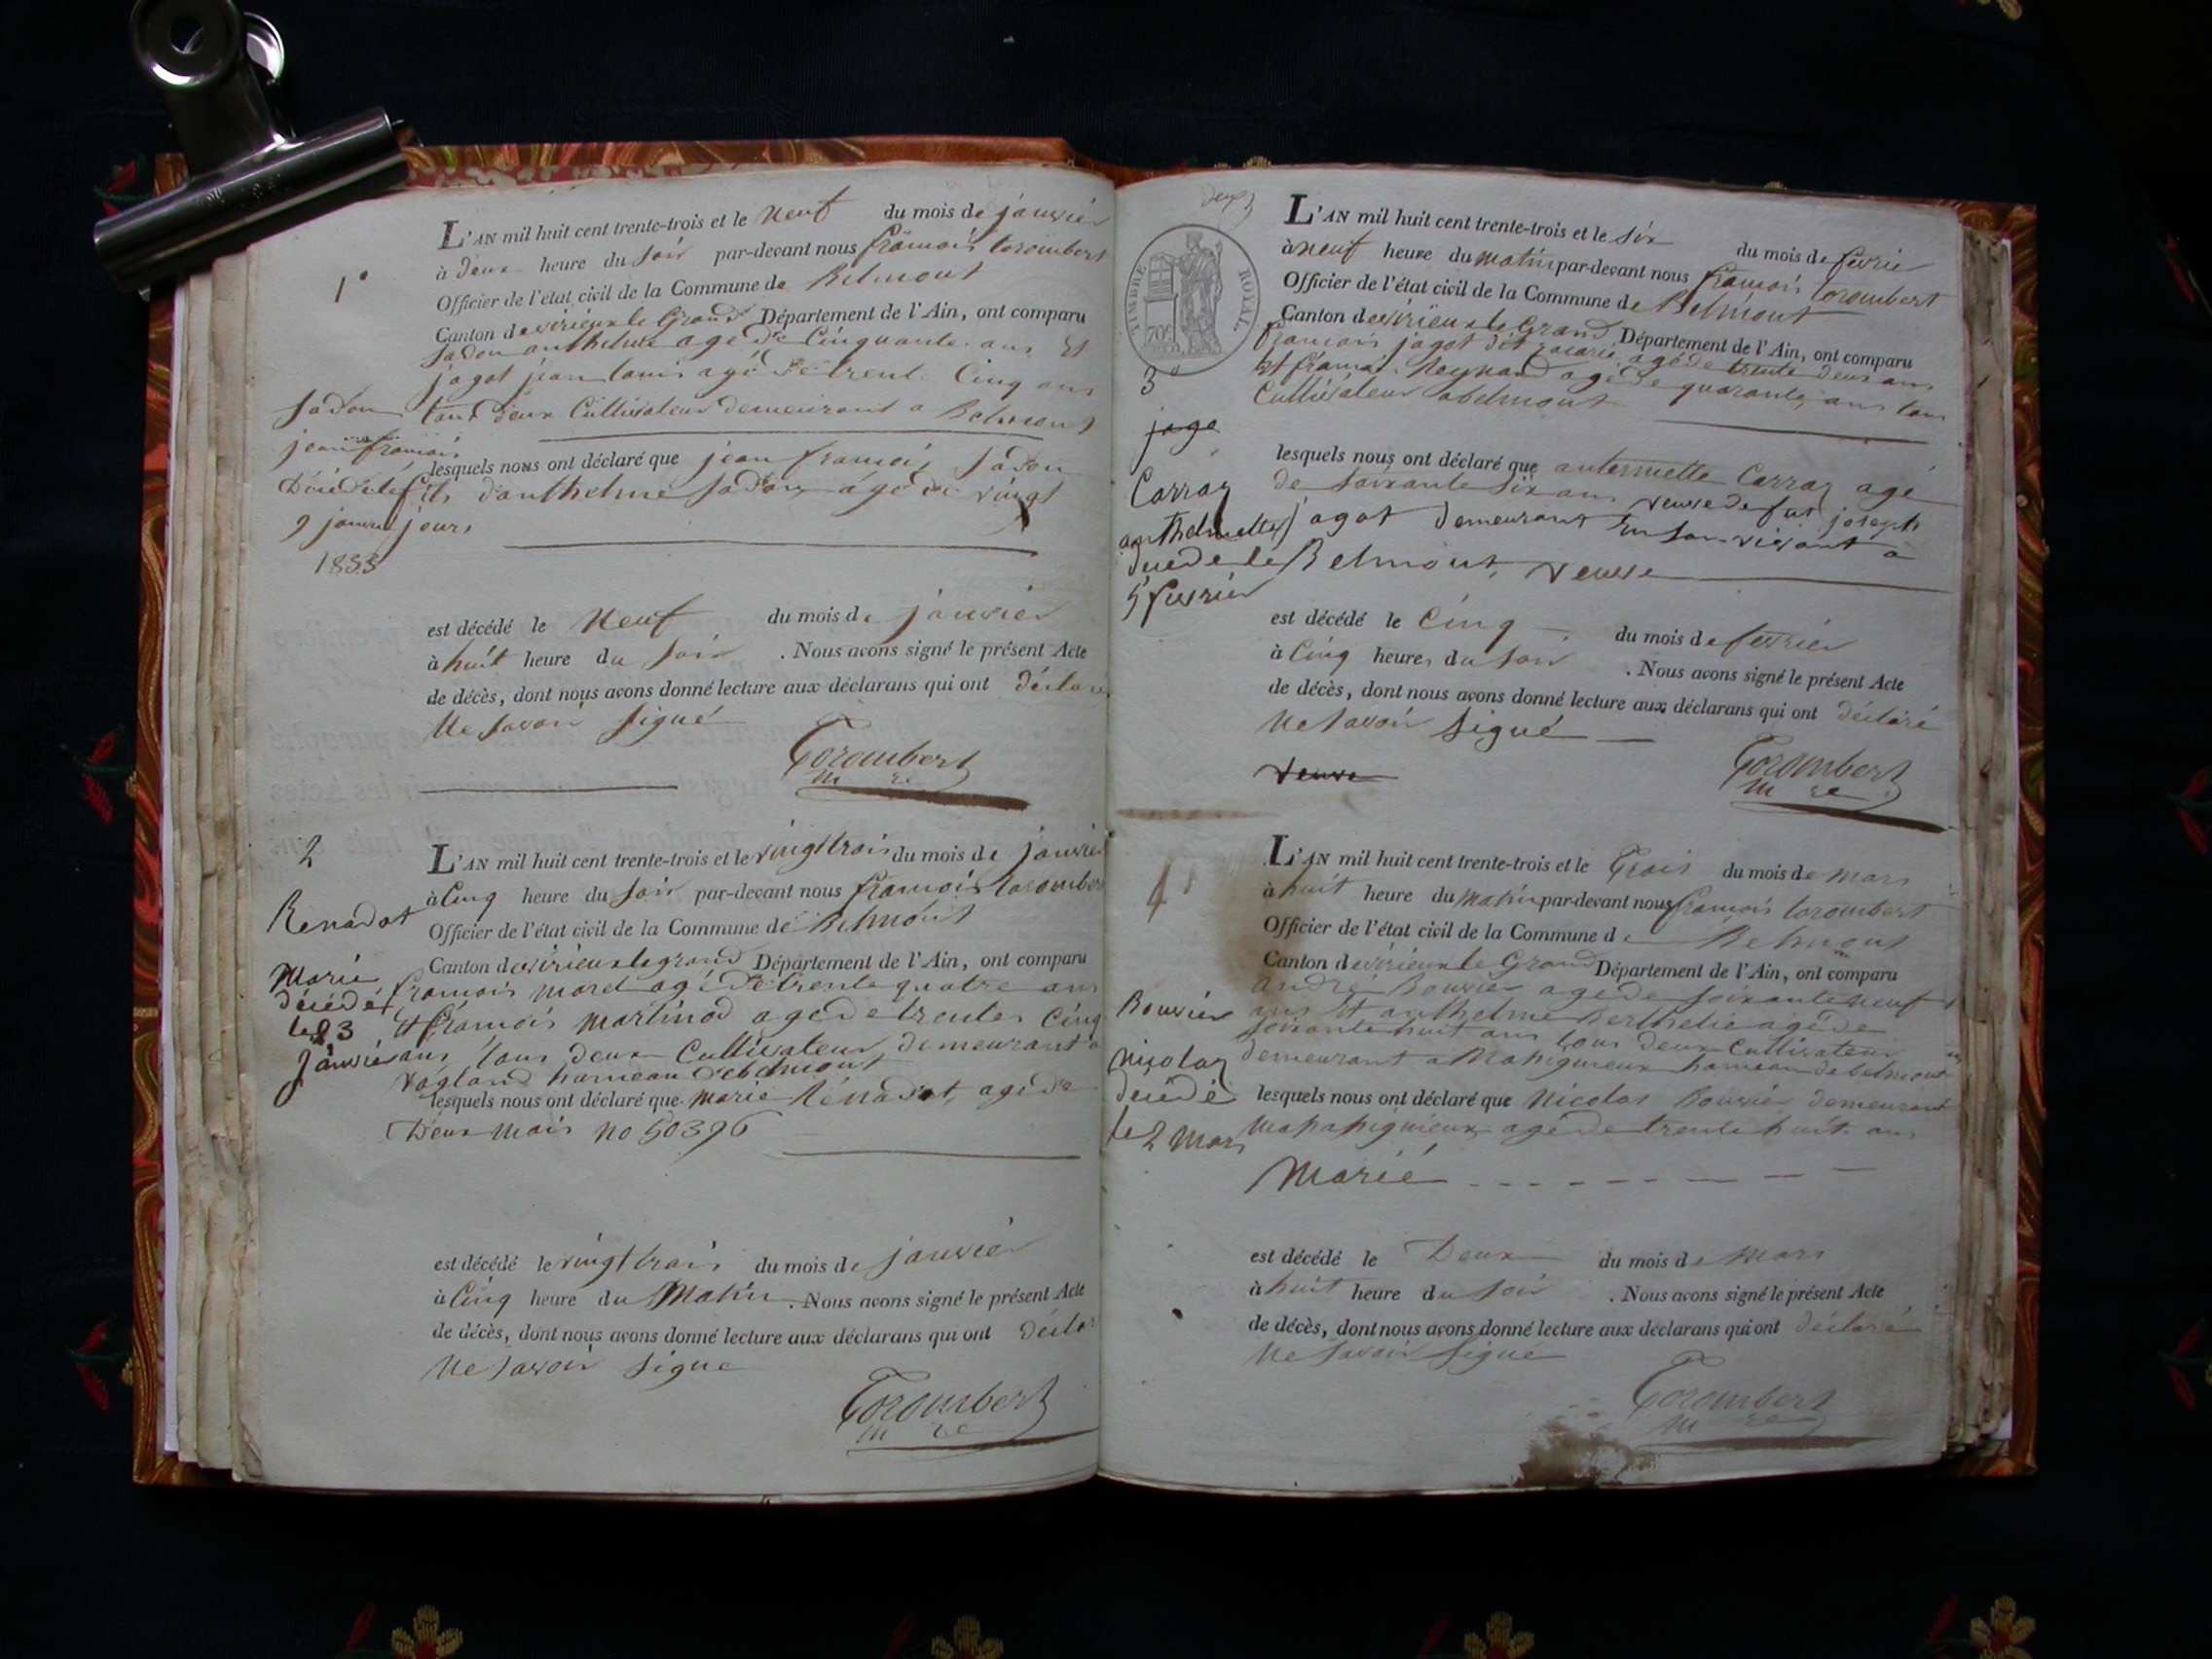 1°
L'AN mil huit cent trente-trois et le neuf du mois de janvier
à deux heure du soir par-devant nous françois torombert
Officier de l'état civil de la Commune de Belmont
Canton de virieux le Grand Département de l'Ain, ont comparu
Jadou anthelme agé de Cinquante ans Et
jagot jean louis agé de trente Cinq ans
tous deux Cultivateur demeurant a Belmont
Jadou
jean françois
Décédé le
9 janvier
1833
lesquels nous ont déclaré que jean françois Jadou
fils d'anthelme Jadou agé de vingt
jours
est décédé le Neuf du mois de janvier
à huit heure du soir . Nous avons signé le présent Acte
de décès, dont nous avons donné lecture aux déclarans qui ont déclaré
ne savoir signé
Torombert
m re
2
Renadot
Marie
décédé
le 23
janvier
L'AN mil huit cent trente-trois et le vingt trois du mois de janvier
à Cinq heure du soir par-devant nous françois torombert
Officier de l'état civil de la Commune de Belmont
Canton de virieux le grand Département de l'Ain, ont comparu
françois morel agé de trente quatre ans
Et françois martinod agé de trente Cinq
ans tous deux Cultivateur demeurant a
vogland hameau de belmont
lesquels nous ont déclaré que marie Rénadot, agé de
Deux mois no 50396
est décédé le vingt trois du mois de janvier
à Cinq heure du Matin . Nous avons signé le présent Acte
de décès, dont nous avons donné lecture aux déclarans qui ont déclaré
ne savoir signe
Torombert
m re
TIMBRE ROYAL
70c
3°
jago
Carraz
anthelmette
décéde le
5 fevrier
L'AN mil huit cent trente-trois et le six du mois de fevrie
à neuf heure du matin par-devant nous françois torombert
Officier de l'état civil de la Commune de Belmont
Canton de virieux le Grand Département de l'Ain, ont comparu
françois jagot dit agé de trente deux ans
Et françois Reynaud agé de quarante ans tous
Cultivateur a belmont
lesquels nous ont déclaré que antermette Carraz agé
de soixante six ans veuve de fut joseph
jagot demeurant En son vivant a
Belmont, veuve
est décédé le Cinq du mois de fevrier
à Cinq heures du soir . Nous avons signé le présent Acte
de décès, dont nous avons donné lecture aux déclarans qui ont déclaré
ne savoir signé
veuve
Torombert
m re
4°
Bouvier
Nicolas
décédé
le 2 mars
L'AN mil huit cent trente-trois et le Trois du mois de mars
à huit heure du matin par-devant nous françois torombert
Officier de l'état civil de la Commune de Belmont
Canton de virieux le Grand Département de l'Ain, ont comparu
andré Bouvier agé de soixante neuf
ans Et anthelme Berthelié agé de
soixante huit ans tous deux Cultivateur
demeurant a hameau de belmont
lesquels nous ont déclaré que Nicolas Bouvier demeurant
agé de trente huit ans
Marié
est décédé le Deux du mois de Mars
à huit heure du soir . Nous avons signé le présent Acte
de décès, dont nous avons donné lecture aux déclarans qui ont déclaré
ne savoir signé
Torombert
m re